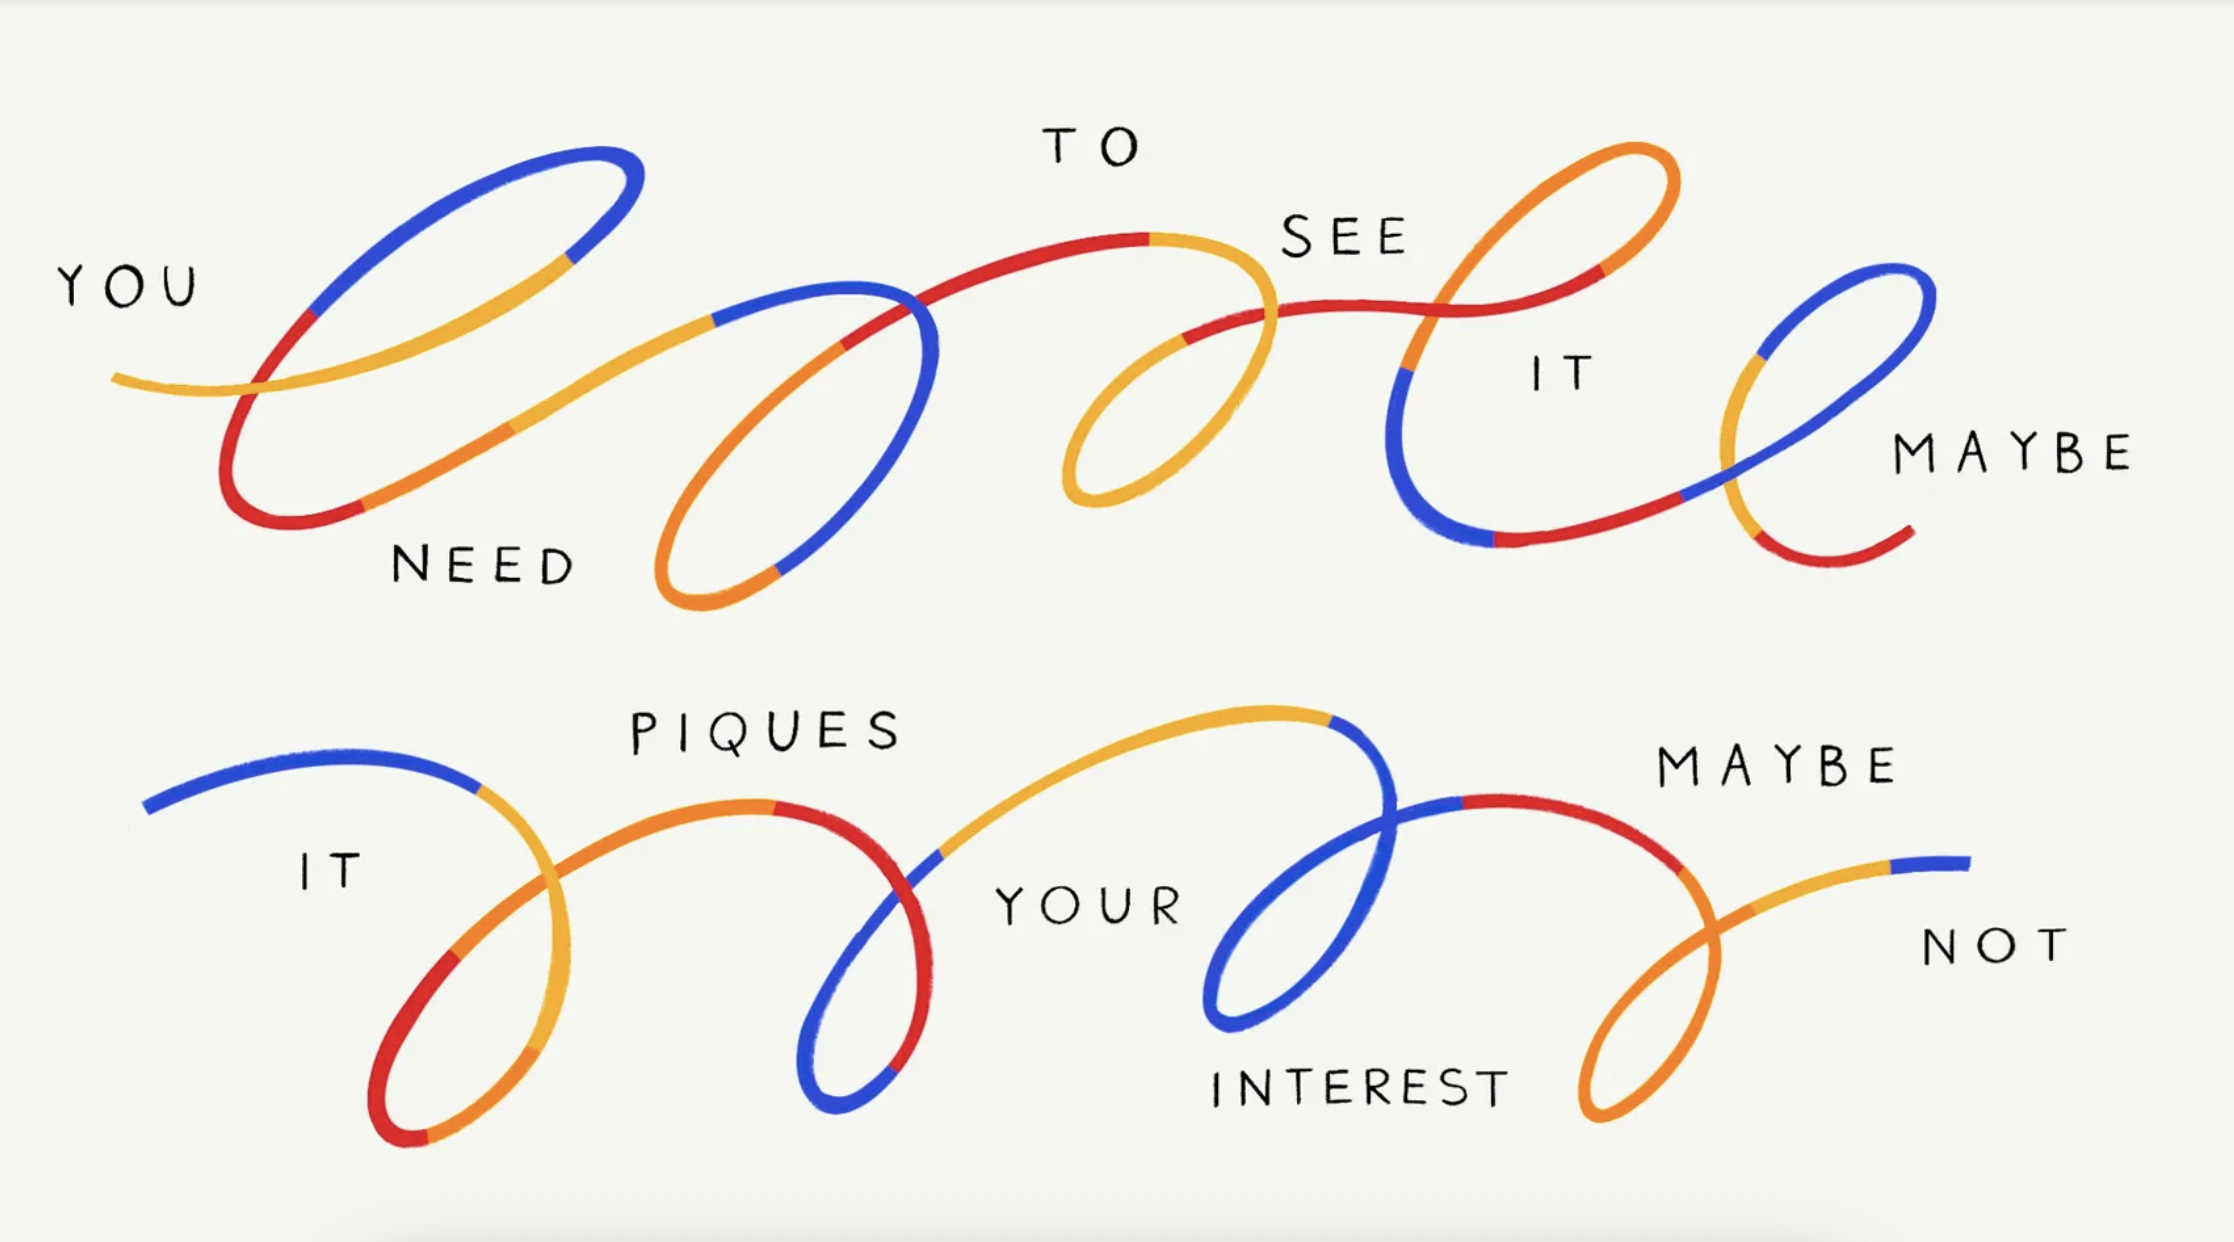 YOU
NEED
TO
SEE
IT
MAYBE
IT
PIQUES
YOUR
INTEREST
MAYBE
NOT